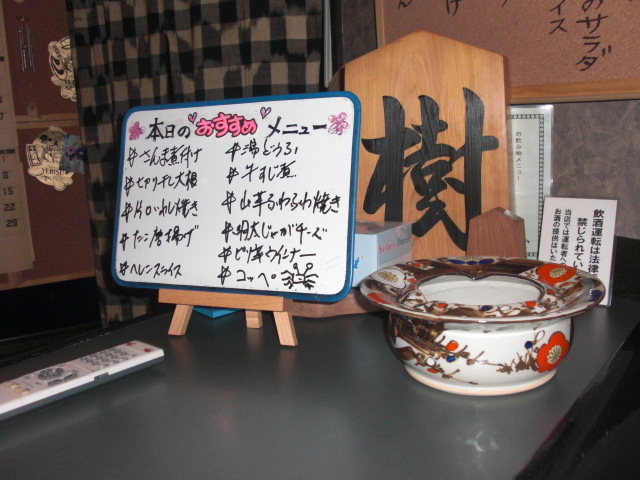 本日のおすすめメニュー
#さんま煮付け
#セセリ干し大根
#片口いわし焼き
#たこ唐揚げ
#ヘレンスライス
#湯どうふ
#牛すじ煮
#山芋ふわふわ焼き
#明太じゃがチーズ
#ピリ辛ウインナー
#コッペ
樹
お飲み物メニュー
飲酒運転は法律
禁じられてい
当店では運転者へ
お酒の提供はいた
のサラダ
イス
け
ん